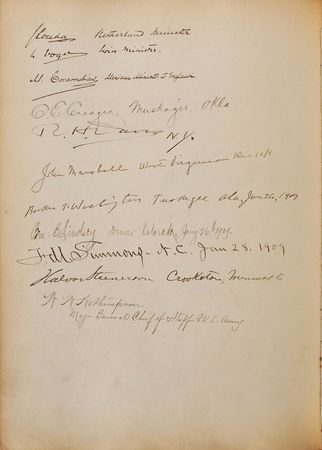 Loudon Netherland Minister
L Vogel Swiss Minister.
M. Covarrubias, Mexican Minister to England
C E Creager, Muskogee, Okla.
R. H. Davis N.Y.
John Marshall West Virginia Dec 10/8
Booker T Washington Tuskegee Ala, Jan 26, 1909
Lindsey Denver Colorado, Jany 26th 1909.
F M Simmons - N.C. Jan 28. 1909
Halvor Steenerson Crookston, Minnesota
Major General Chief of Staff U.S. Army